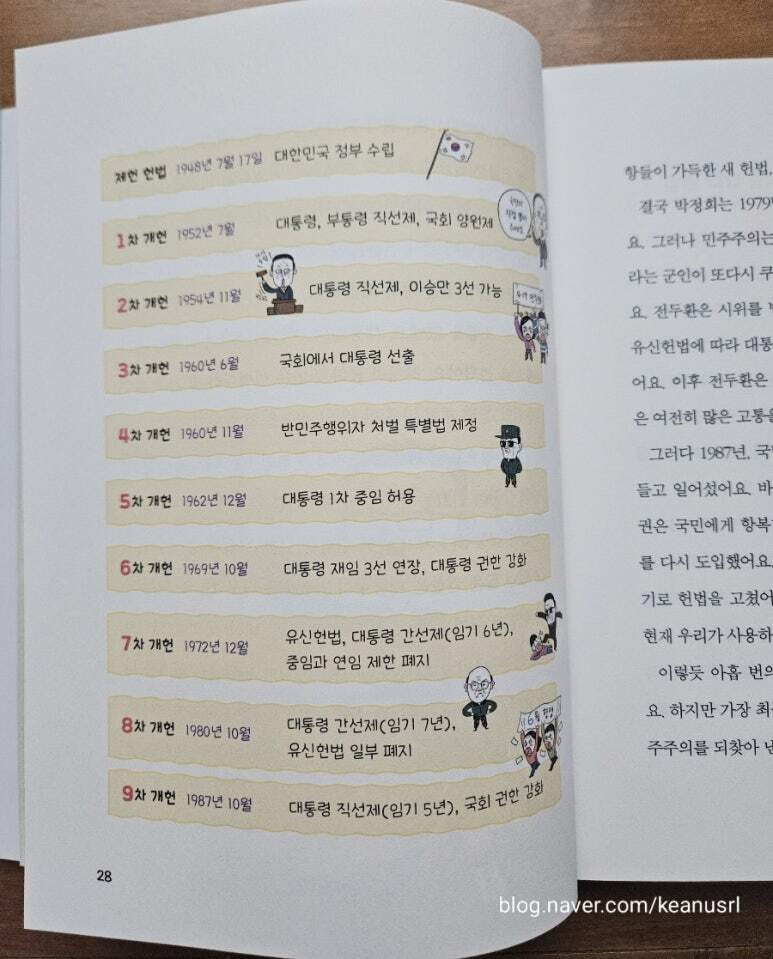 제헌 헌법 1948년 7월 17일 대한민국 정부 수립
1차 개헌 1952년 7월 대통령, 부통령 직선제, 국회 양원제
2차 개헌 1954년 11월 대통령 직선제, 이승만 3선 가능
3차 개헌 1960년 6월 국회에서 대통령 선출
4차 개헌 1960년 11월 반민주행위자 처벌 특별법 제정
5차 개헌 1962년 12월 대통령 1차 중임 허용
6차 개헌 1969년 10월 대통령 재임 3선 연장, 대통령 권한 강화
7차 개헌 1972년 12월 유신헌법, 대통령 간선제(임기 6년),
중임과 연임 제한 폐지
8차 개헌 1980년 10월 대통령 간선제(임기 7년),
유신헌법 일부 폐지
9차 개헌 1987년 10월 대통령 직선제(임기 5년), 국회 권한 강화
28
항들이 가득한 새 헌법,
결국 박정희는 1979
요. 그러나 민주주의는
라는 군인이 또다시 쿠
요. 전두환은 시위를
유신헌법에 따라 대통
어요. 이후 전두환은
은 여전히 많은 고통을
그러다 1987년, 국
들고 일어섰어요. 바
권은 국민에게 항복
를 다시 도입했어요.
기로 헌법을 고쳤어
현재 우리가 사용하
이렇듯 아홉 번의
요. 하지만 가장 최
주주의를 되찾아 낸
blog.naver.com/keanusrl